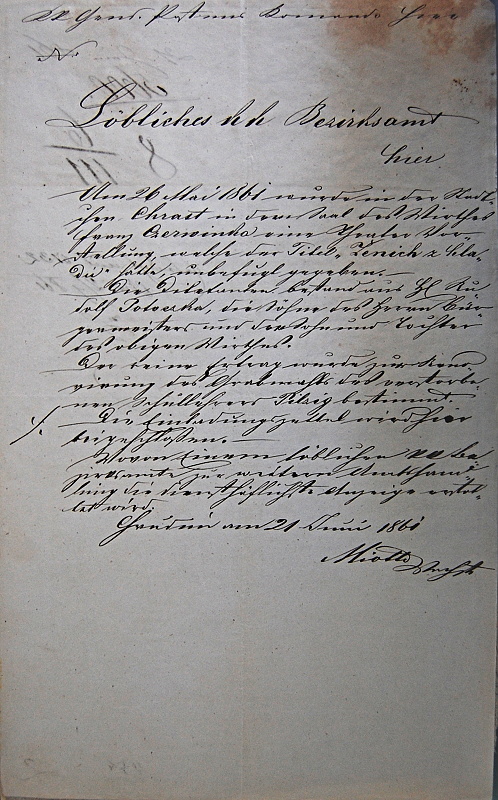 KK Gens. Postens Komando Herr
No
Löbliches kk Bezirksamt
hier.
Am 26 Mai 1861 wurde in der Städt-
chen Chrast in dem Saal des Wirthes
Franz Czerwinka eine Theater Vor-
stellung, welche der Titel "Zenich z
hätte, unbefugt gegeben.—
Die Diletanten bestand aus H Ru-
dolf Potoczka, die Söhne des Herrn Bür-
germeisters und der Sohn und Tochter
des obigen Wirthes.
Der reine Ertrag wurde zur Reno-
virung des Grabmahls des verstorbe-
nen Schullehrers Pilzig bestimmt.
./. Die Einladungszettel wird hier
beigeschlossen.—
Wovon Einem löblichen kk Be-
zirksamte zur weitern Amtshand-
lung die diensthöflichste Anzeige erstat-
tet wird.
Chrudim am 21 Juni 1861
Miotto
Wachtm
8
III